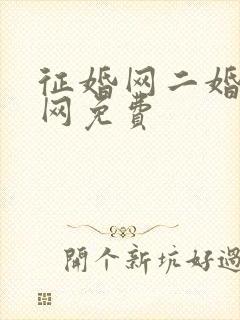 征婚网二婚
网免费
開个新坑好過